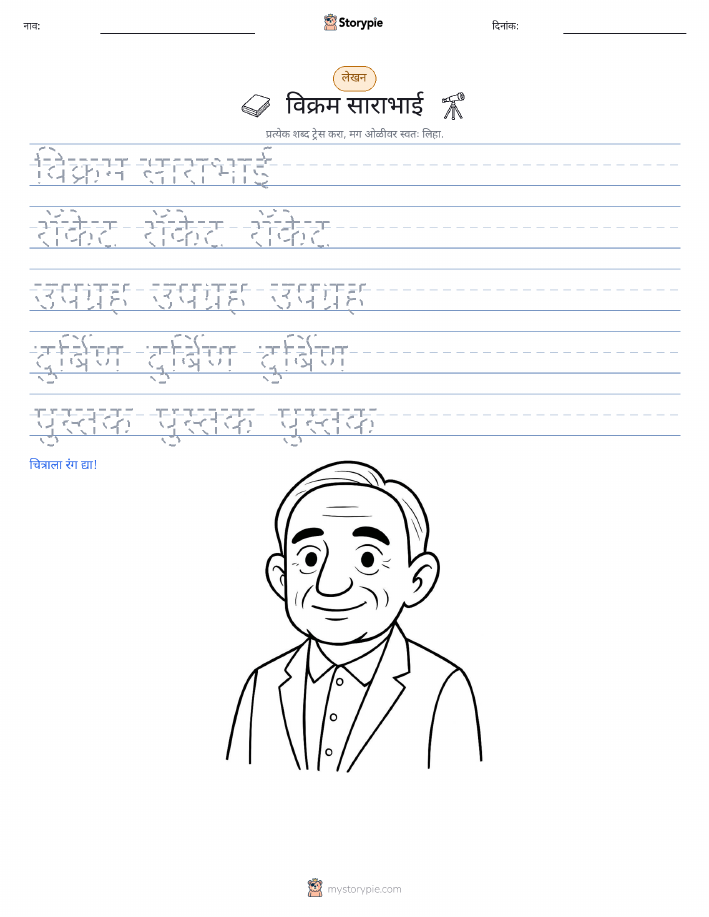 नाव:
Storypie
दिनांक:
लेखन
विक्रम साराभाई
प्रत्येक शब्द ट्रेस करा, मग ओळीवर स्वतः लिहा.
विक्रम साराभाई
रॉकेट रॉकेट रॉकेट
उपग्रह उपग्रह उपग्रह
दुर्बिण दुर्बिण दुर्बिण
पुस्तक पुस्तक पुस्तक
चित्राला रंग द्या!
mystorypie.com